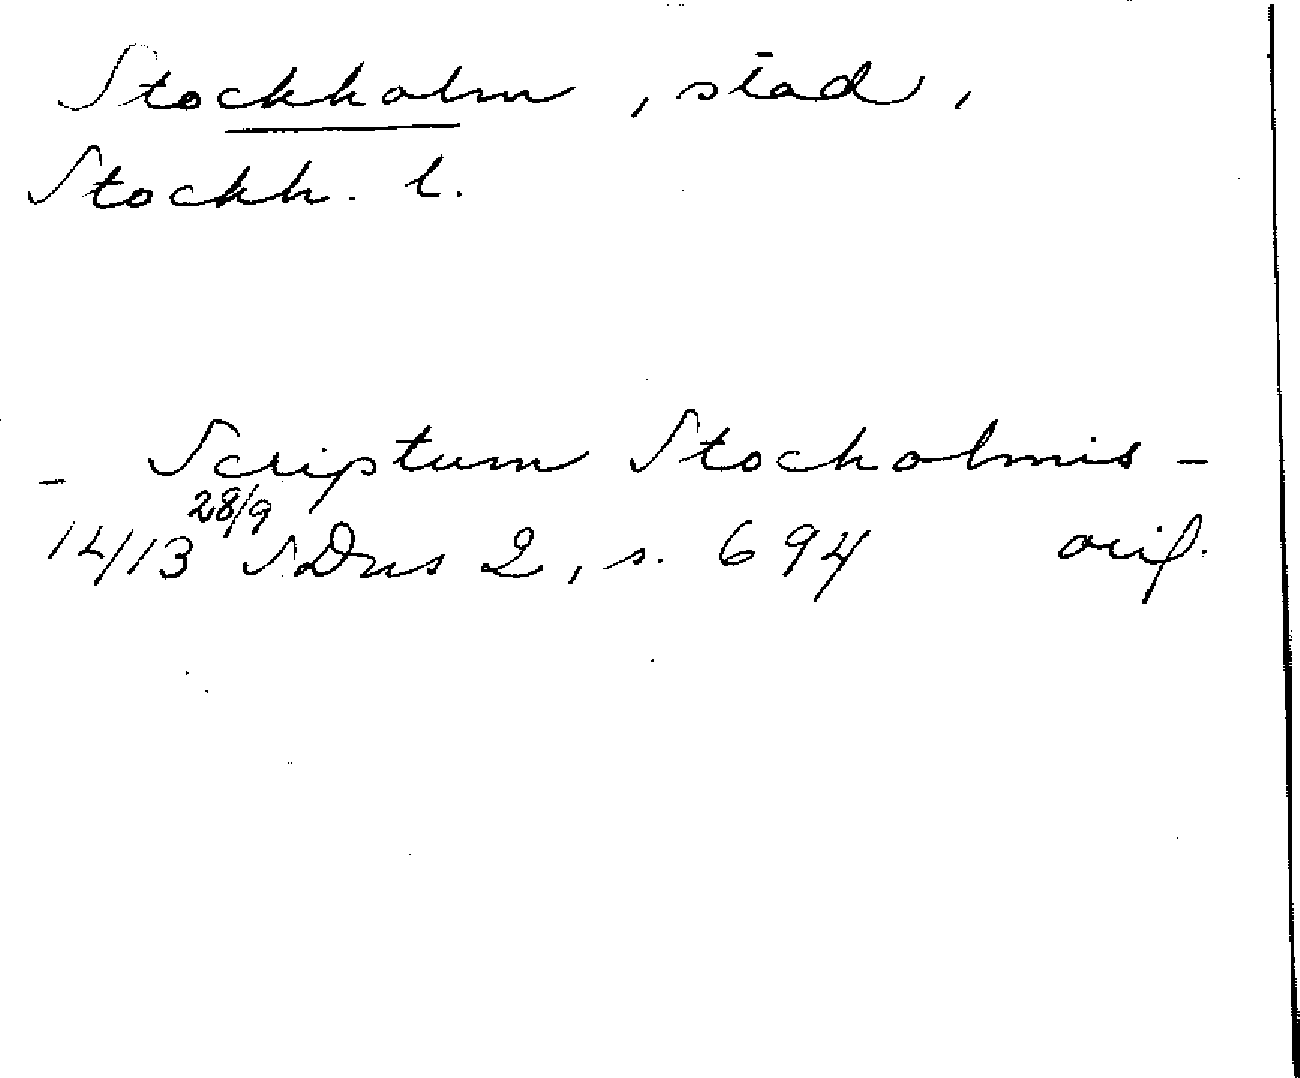 Stockholm, stad,
Stockh. l.
- Scriptum Stocholmis -
1413 28/9 SDns 2, s. 694 orig.